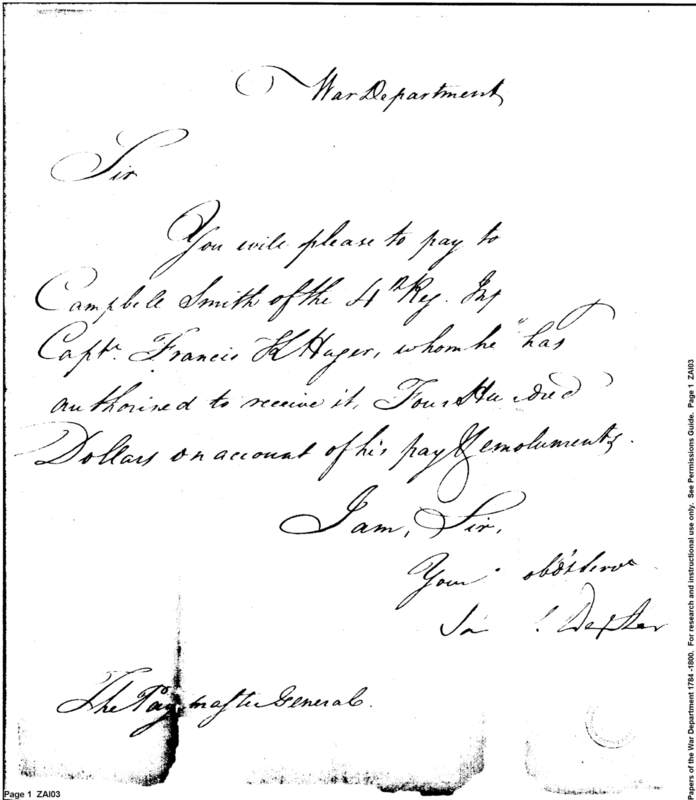 War Department
Sir
You will please to pay to
Campbell Smith of the 4th Reg. Inf
Captn. Francis K Huger, whom he "has
authorised to receive it, Four Hundred
Dollars on account of his pay & emoluments.
I am, Sir,
Your obdt Serva
Sa l Dexter
The Paymaster General.
Page 1 ZAI03
Papers of the War Department 1784 -1800. For research and instructional use only. See Permissions Guide. Page 1 ZAI03